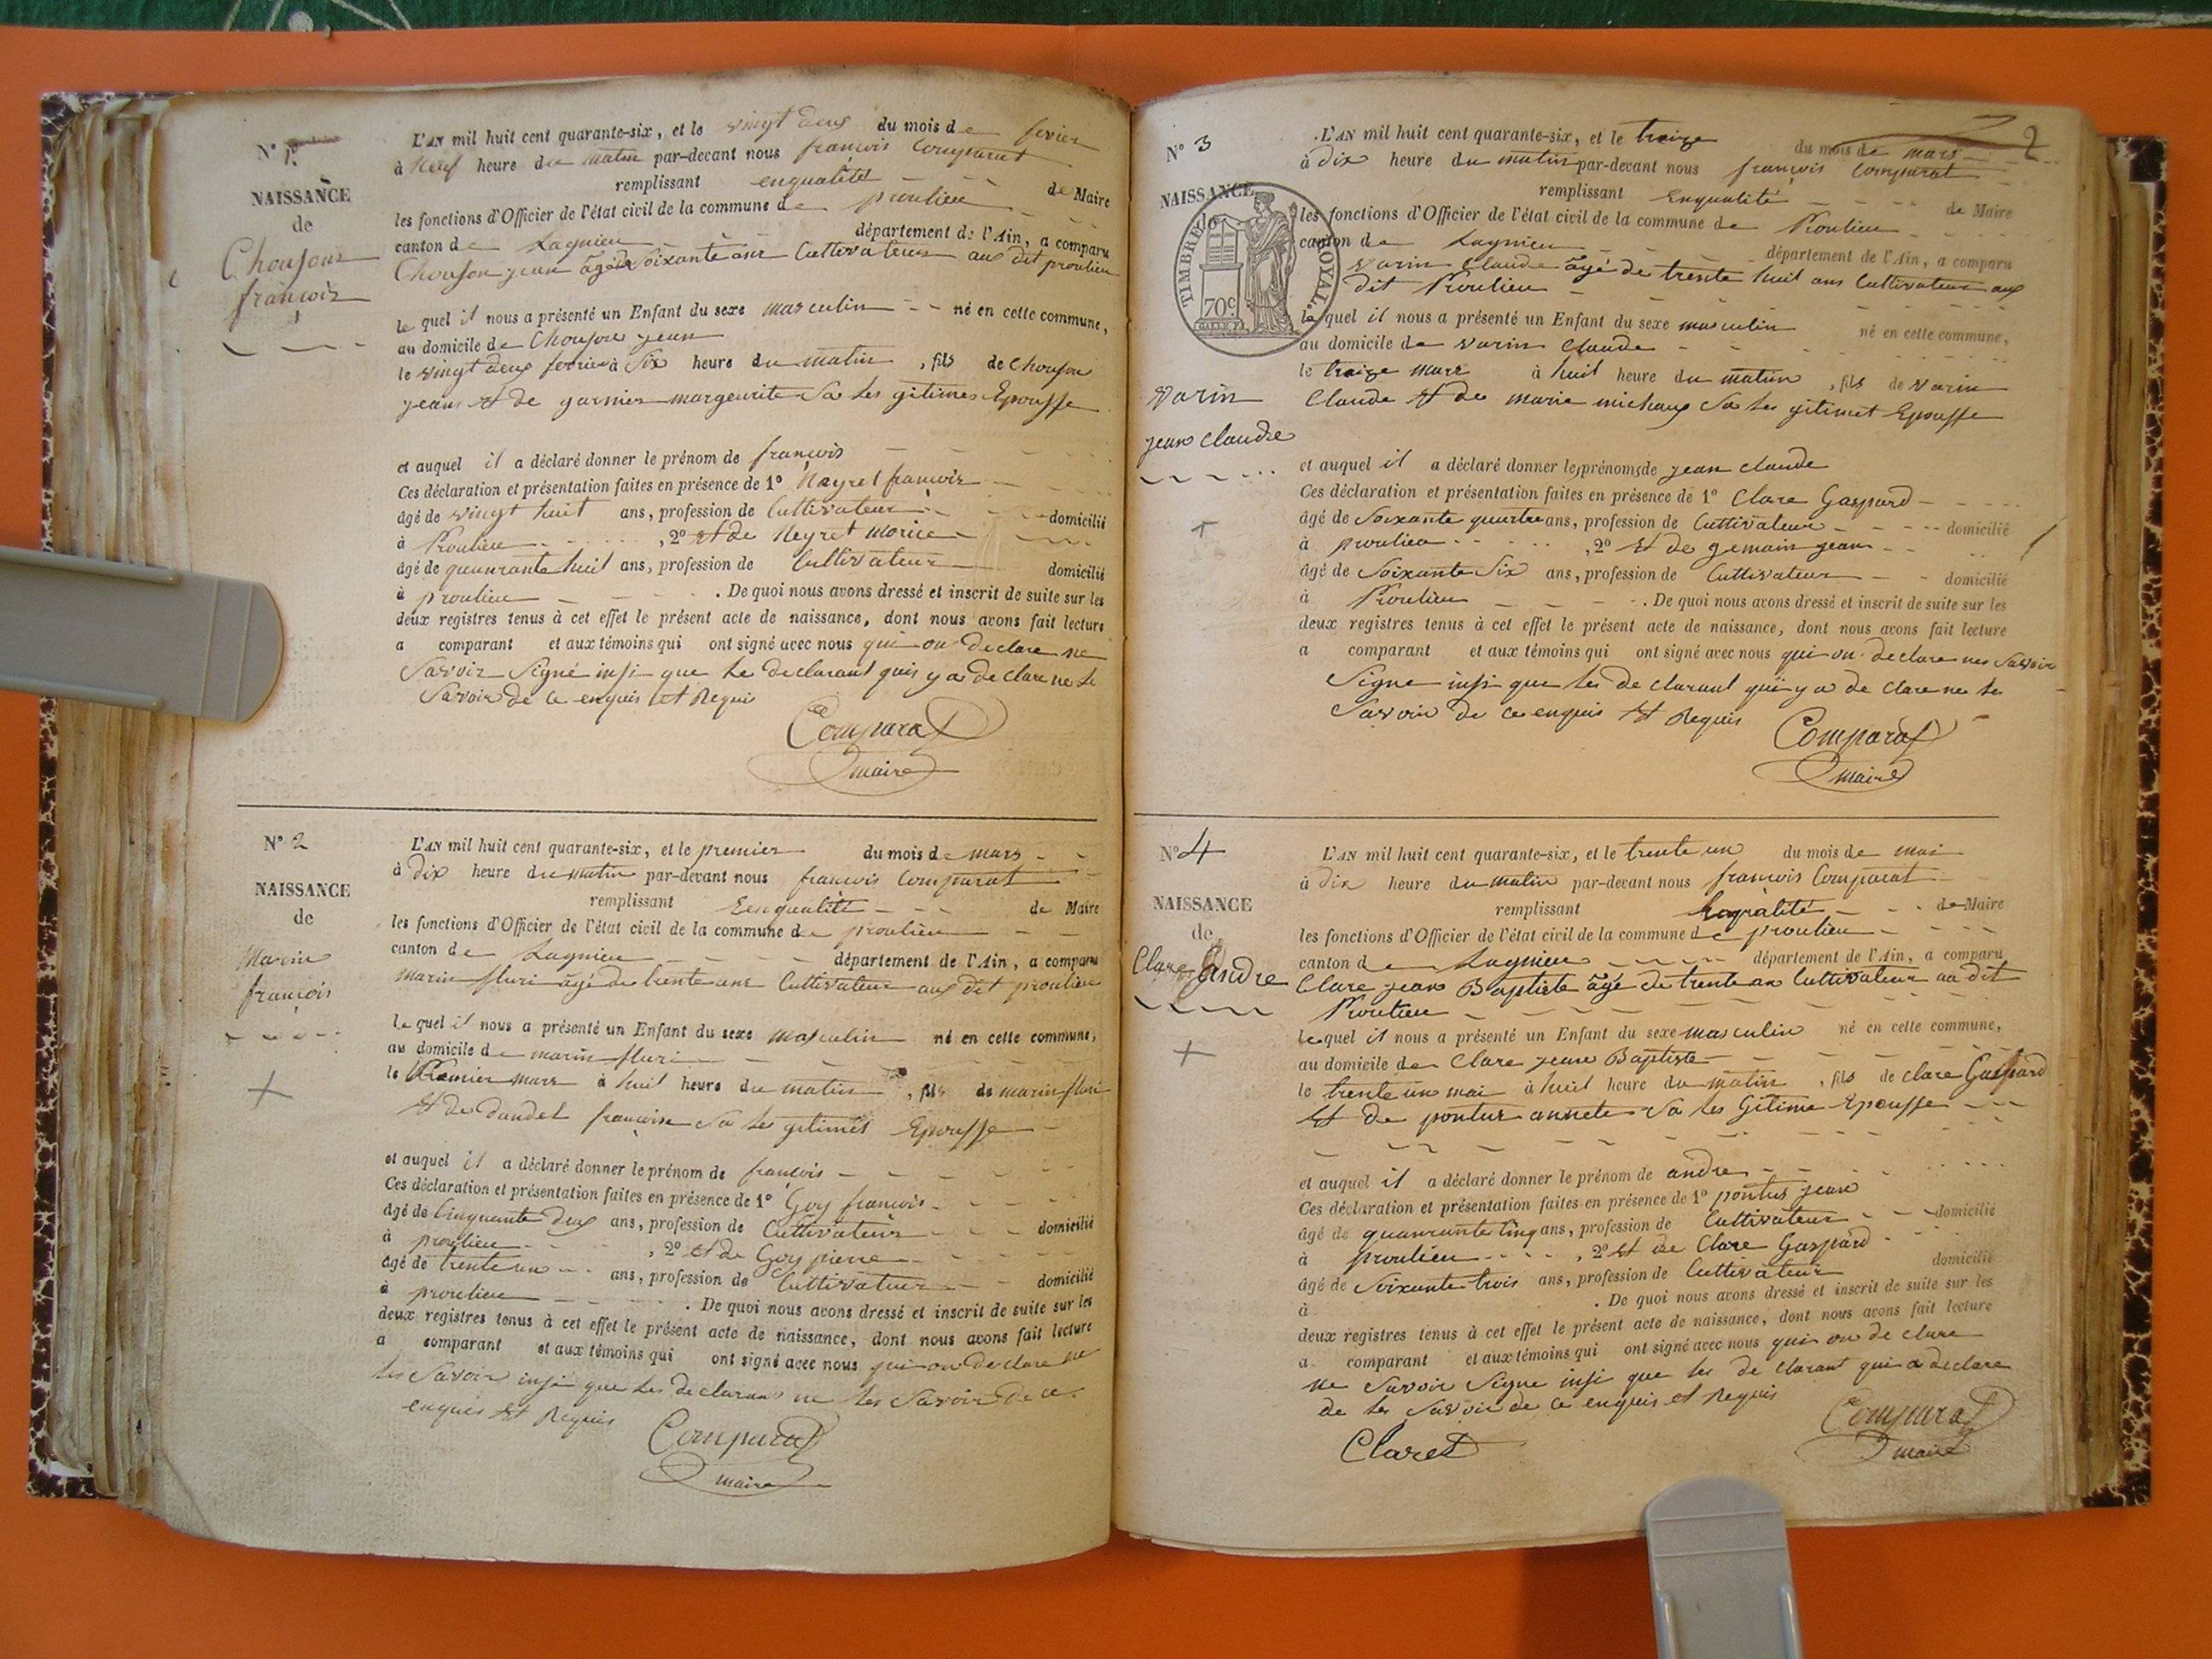 N° 1er
NAISSANCE
de
Choufour
francois
L'AN mil huit cent quarante-six, et le vingt deux du mois de fevier
à Neuf heure du matin par-devant nous françois Comparat
remplissant enqualité de Maire
les fonctions d'Officier de l'état civil de la commune de proulieu
canton de Lagnieu département de l'Ain, a comparu
Choufou jean âgé de Soixante ans Cultivateur aus dit proulieu
le quel il nous a présenté un Enfant du sexe masculin né en cette commune,
au domicile de Choufou jean
le vingt deux fevrier à Six heure du matin, fils de Choufou
jean et de garnier margeurite Sa les gitimes Epousse
et auquel il a déclaré donner le prénom de françois
Ces déclaration et présentation faites en présence de 1° Neyret francois
âgé de vingt huit ans, profession de Cultivateur domicilié
à Proulieu, 2° et de Neyret Morice
âgé de quanrante huit ans, profession de Cultivateur domicilié
à proulieu. De quoi nous avons dressé et inscrit de suite sur les
deux registres tenus à cet effet le présent acte de naissance, dont nous avons fait lecture
a comparant et aux témoins qui ont signé avec nous qui on declare ne
Savoir Signé insi que le declarant qui y a de clare ne le
Savoir de ce enquis et Requi
Comparat
maire
N° 2
NAISSANCE
de
Marin
françois
L'AN mil huit cent quarante-six, et le premier du mois de mars
à dix heure du matin par-devant nous françois Comparat
remplissant Eenqualité de Maire
les fonctions d'Officier de l'état civil de la commune de proulieu
canton de Lagnieu département de l'Ain, a comparu
marin fluri âgé de trente ans Cultivateur aus dit proulieu
le quel il nous a présenté un Enfant du sexe masculin né en cette commune,
au domicile de marin fluri
le Premier mars à huit heure du matin, fils de marin fluri
et de dandel françoise Sa les gitimes Epousse
et auquel il a déclaré donner le prénom de françois
Ces déclaration et présentation faites en présence de 1° Goy françois
âgé de Cinquante deux ans, profession de Cultivateur domicilié
à proulieu, 2° et de Goy pierre
âgé de trente un ans, profession de Cultivateur domicilié
à proulieu. De quoi nous avons dressé et inscrit de suite sur les
deux registres tenus à cet effet le présent acte de naissance, dont nous avons fait lecture
a comparant et aux témoins qui ont signé avec nous qui on declare ne
les Savoir insi que les declarans ne les Savoir de ce
enquis et Requis
Comparat
maire
2
N° 3
NAISSANCE
de
TIMBRE ROYAL
70c.
varin
jean claude
L'AN mil huit cent quarante-six, et le treize du mois de mars
à dix heure du matin par-devant nous françois Comparat
remplissant Enqualité de Maire
les fonctions d'Officier de l'état civil de la commune de Proulieu
canton de Lagnieu département de l'Ain, a comparu
varin claude âgé de trente huit ans Cultivateur aus
dit Proulieu
le quel il nous a présenté un Enfant du sexe masculin né en cette commune,
au domicile de varin claude
le treize mars à huit heure du matin, fils de varin
Claude et de marie michaux Sa les gitimet Epousse
et auquel il a déclaré donner le prénoms de jean claude
Ces déclaration et présentation faites en présence de 1° Clare Gaspard
âgé de Soixante quartre ans, profession de Cultivateur domicilié
à proulieu, 2° et de gemain jean
âgé de Soixante Six ans, profession de Cultivateur domicilié
à Proulieu. De quoi nous avons dressé et inscrit de suite sur les
deux registres tenus à cet effet le présent acte de naissance, dont nous avons fait lecture
a comparant et aux témoins qui ont signé avec nous qui on declare nes Savoir
Signe insi que les de clarant qui y a de clare ne les
Savoir de ce enquis et Requis
Comparat
maire
N° 4
NAISSANCE
de
Clare andre
L'AN mil huit cent quarante-six, et le trente un du mois de mai
à dix heure du matin par-devant nous francois Comparat
remplissant de Maire
les fonctions d'Officier de l'état civil de la commune de proulieu
canton de Lagnieu département de l'Ain, a comparu
Clare jean Baptiste âgé de trente an Cultivateur au dit
Proulieu
le quel il nous a présenté un Enfant du sexe masculin né en cette commune,
au domicile de Clare jean Baptiste
le trente un mai à huit heure du matin, fils de clare Gaspard
et de pontus annete Sa les Gitime Epousse
et auquel il a déclaré donner le prénom de andre
Ces déclaration et présentation faites en présence de 1° pontus jean
âgé de quanrante Cinq ans, profession de Cultivateur domicilié
à proulieu, 2° et de Clare Gaspard
âgé de Soixante trois ans, profession de Cultivateur domicilié
à . De quoi nous avons dressé et inscrit de suite sur les
deux registres tenus à cet effet le présent acte de naissance, dont nous avons fait lecture
a comparant et aux témoins qui ont signé avec nous qui on de clare
ne Savoir Signe insi que les de clarant qui a declare
de les Savoir de ce enquis et Requis
Claret
Comparat
maire